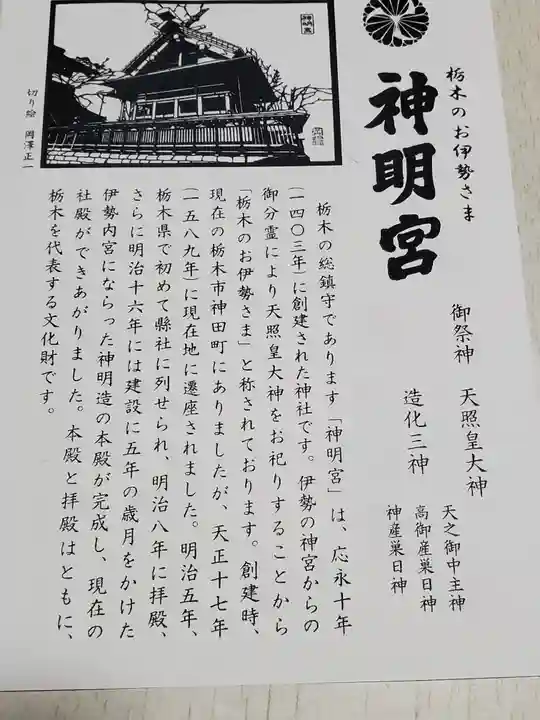 栃木のお伊勢さま
神明宮
御祭神 天照皇大神
造化三神
天之御中主神
高御産巣日神
神産巣日神
神明宮
切り絵 岡澤正一
栃木の総鎮守であります「神明宮」は、応永十年
(一四〇三年)に創建された神社です。伊勢の神宮からの
御分霊により天照皇大神をお祀りすることから
「栃木のお伊勢さま」と称されております。創建時、
現在の栃木市神田町にありましたが、天正十七年
(一五八九年)に現在地に遷座されました。明治五年、
栃木県で初めて縣社に列せられ、明治八年に拝殿、
さらに明治十六年には建設に五年の歳月をかけた
伊勢内宮にならった神明造の本殿が完成し、現在の
社殿ができあがりました。本殿と拝殿はともに、
栃木を代表する文化財です。